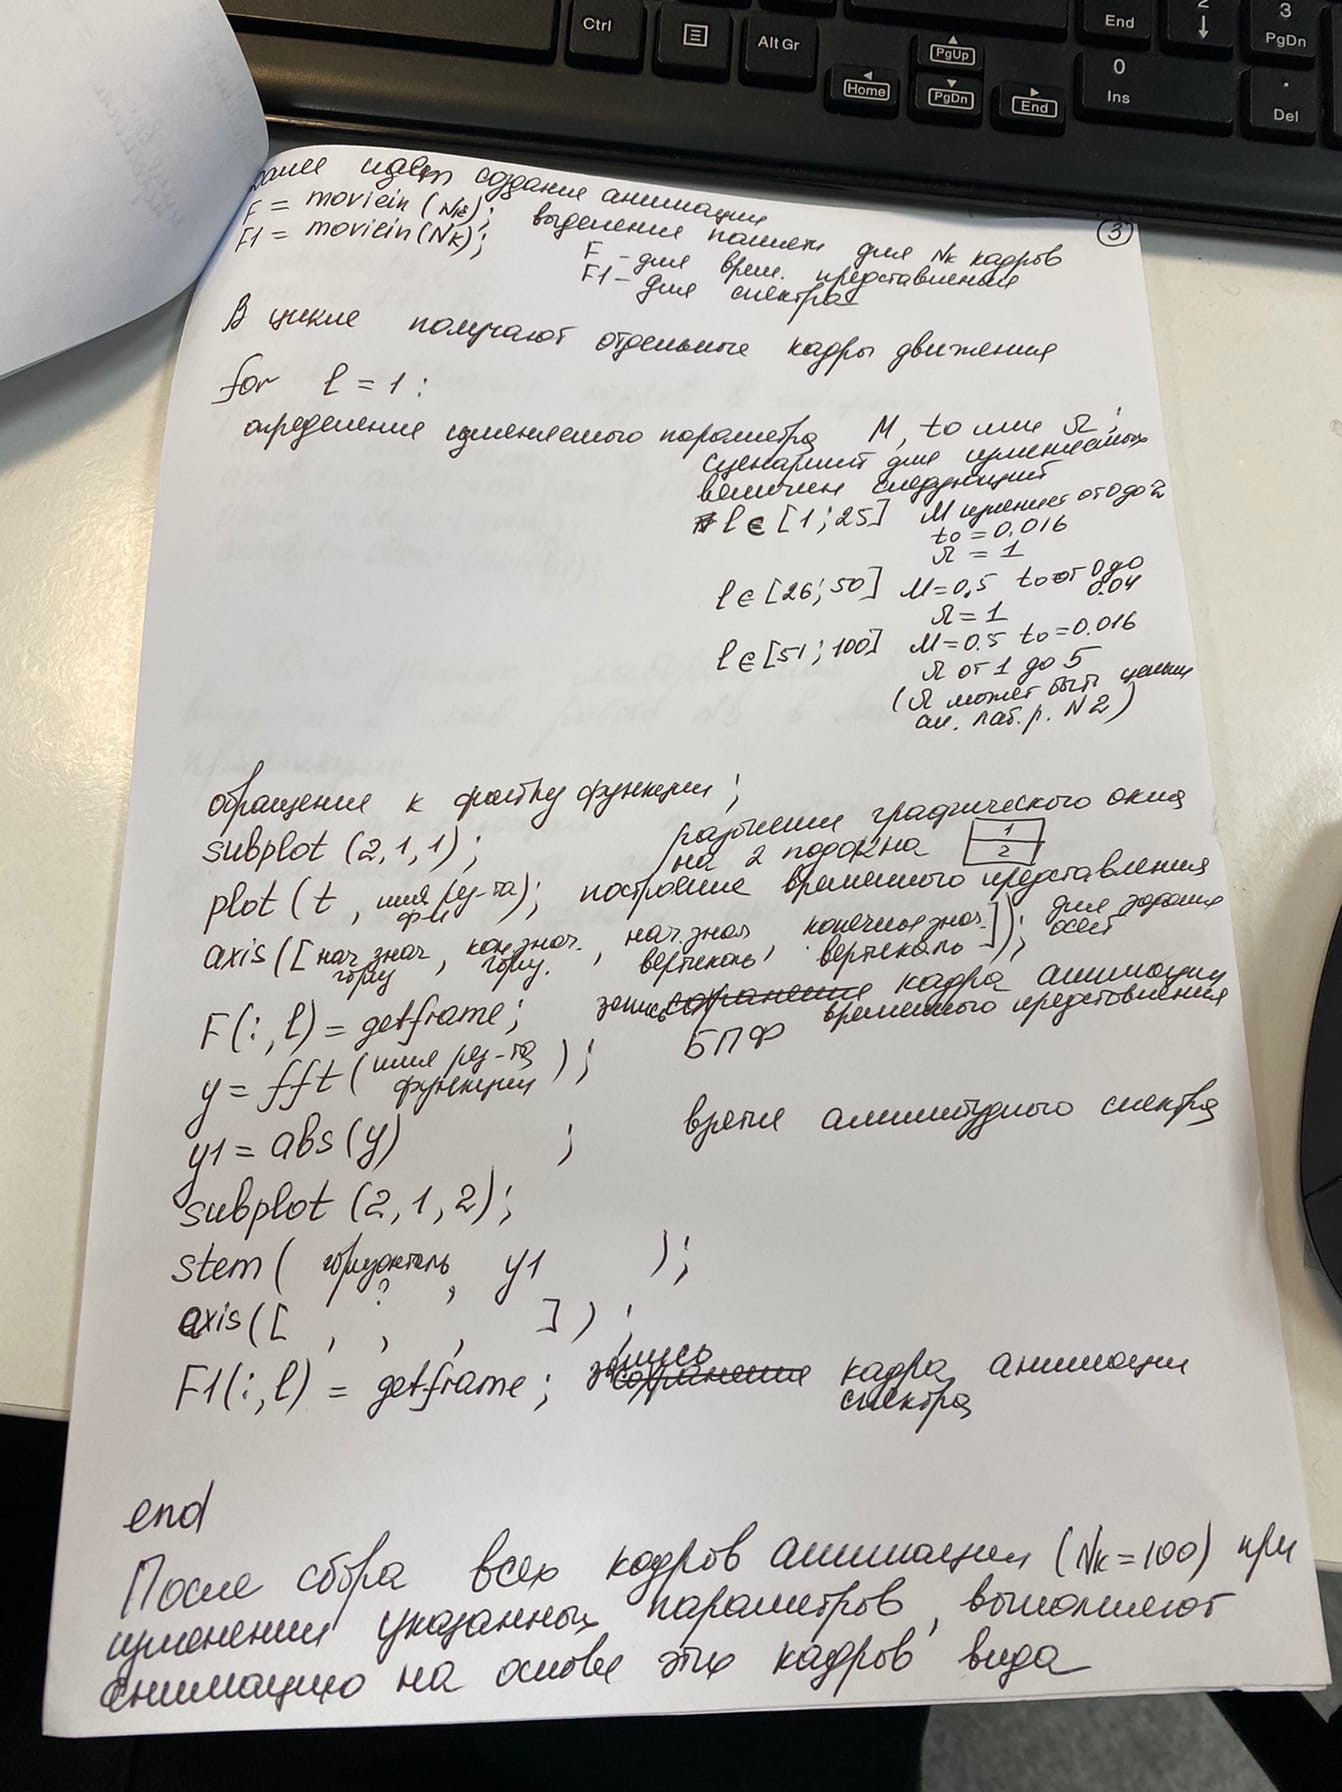 Ctrl
Alt Gr
PgUp
Home
PgDn
End
End
0
Ins
2
↓
3
PgDn
.
Del
далее идет создание анимации
3
F = moviein (Nк); выделение памяти для Nк кадров
F1 = moviein (Nк); F - для врем. представления
F1 - для спектра
В цикле получают отдельные кадры движения
for l = 1 :
определение изменяемого параметра M, to или Ω ;
сценарий для изменяемых
величин следующий
l ∈ [1 ; 25] M изменяет от 0 до 2
to = 0.016
Ω = 1
l ∈ [26 ; 50] M = 0.5 to от 0 до
0.04
Ω = 1
l ∈ [51 ; 100] M = 0.5 to = 0.016
Ω от 1 до 5
(Ω может быть целым
см. лаб. р. N2)
обращение к файлу функции ;
subplot (2,1,1) ; разбиение графического окна
на 2 подокна 1
2
plot (t , имя рез-та ф-ии) ; построение временного представления
axis ([ нач. знач. гориз , кон. знач. гориз. , нач. знач вертикаль , конечные знач. вертикаль ]) ; для задания осей
F(: , l) = getframe ; запись сохранение кадра анимации
временного представления
y = fft ( имя рез-та функции ) ; БПФ
y1 = abs (y) ; взятие амплитудного спектра
subplot (2, 1, 2) ;
stem ( горизонталь ? , y1 ) ;
axis ([ , , , ]) ;
F1 (: , l) = getframe ; запись сохранение кадра анимации
спектра
end
После сбора всех кадров анимации (Nк = 100) при
изменении указанных параметров, выполняют
анимацию на основе этих кадров вида